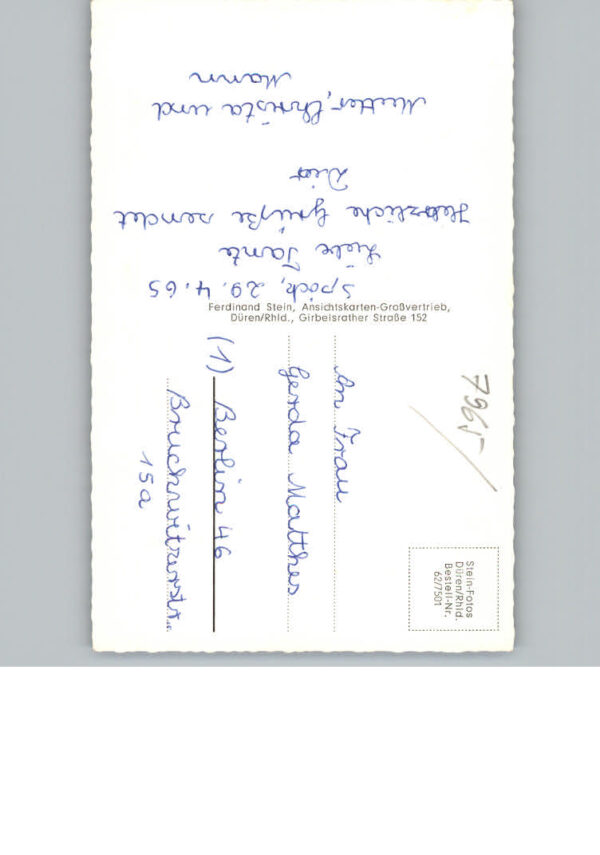 Spöck, 29.4.65
Liebe Tante
Herzliche Grüße sendet
Dir
Mutter, Christa und
Mann
Ferdinand Stein, Ansichtskarten-Großvertrieb,
Düren/Rhld., Girbelsrather Straße 152
An Frau
Gerda Matthes
(1) Berlin 46
Bruchwitzerstr.
15a
7965
Stein-Fotos
Düren/Rhld.
Bestell-Nr.
62/7501